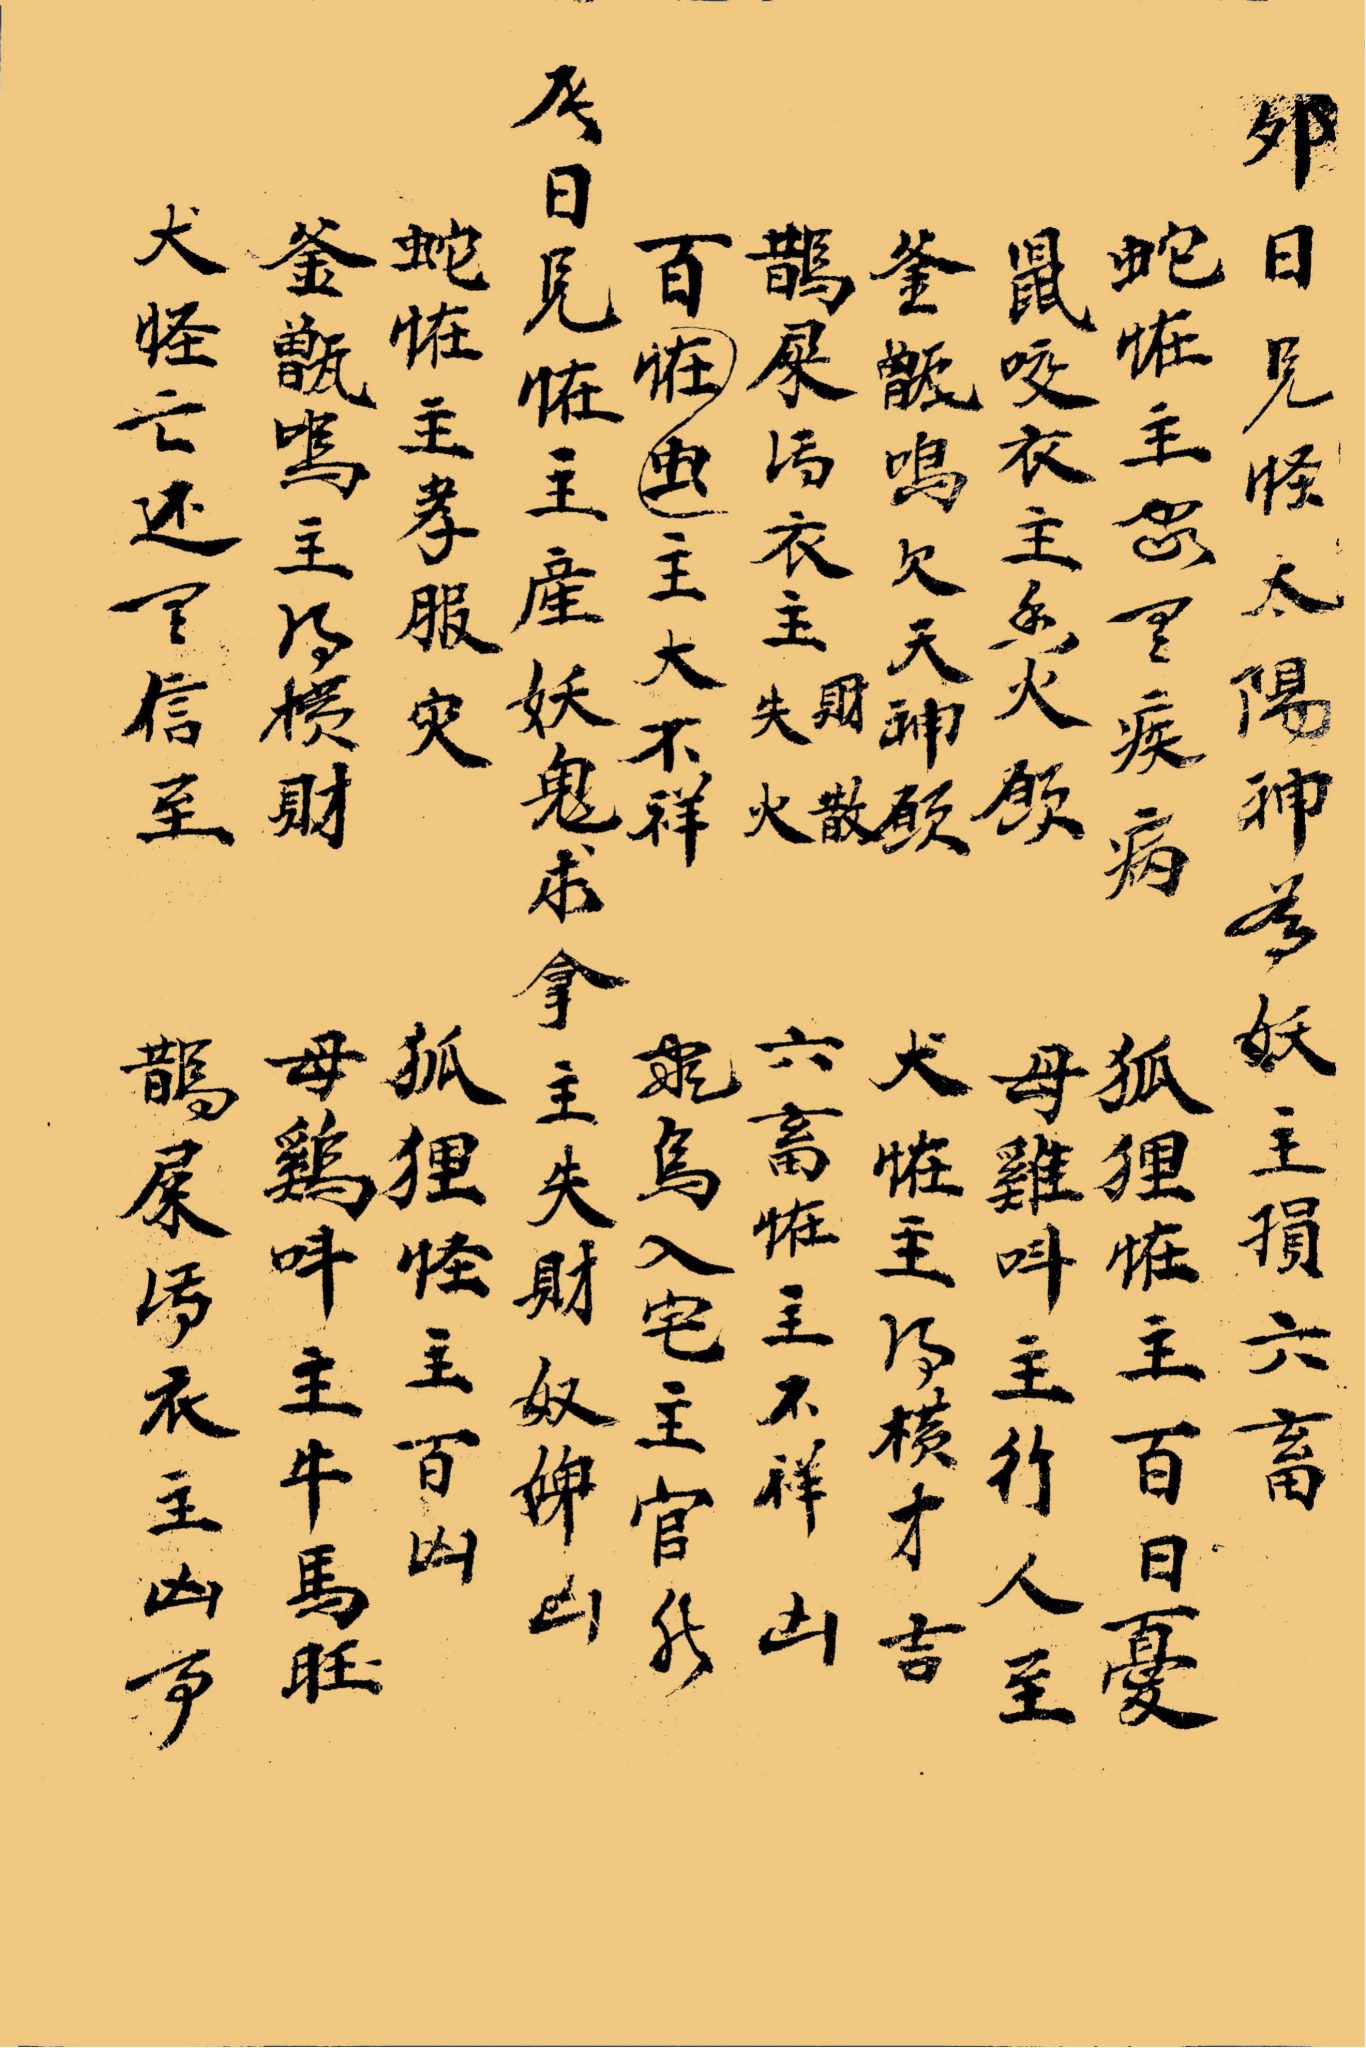 卯日見怪太陽神為妖主損六畜
蛇恠主 疾病 狐狸恠主百日憂
鼠咬衣主 火願 母雞呌主行人至
釜甑鳴欠天神願 犬恠主得横才吉
鵲屎污衣主失火財散 六畜恠主不祥凶
百恠虫主大不祥 烏入宅主官
辰日見恠主産妖鬼求拿主失財奴婢凶
蛇恠主孝服灾 狐狸怪主百凶
釜甑鳴主得横財 母鷄呌主牛馬旺
犬怪亡还 信至 鵲屎污衣主凶事